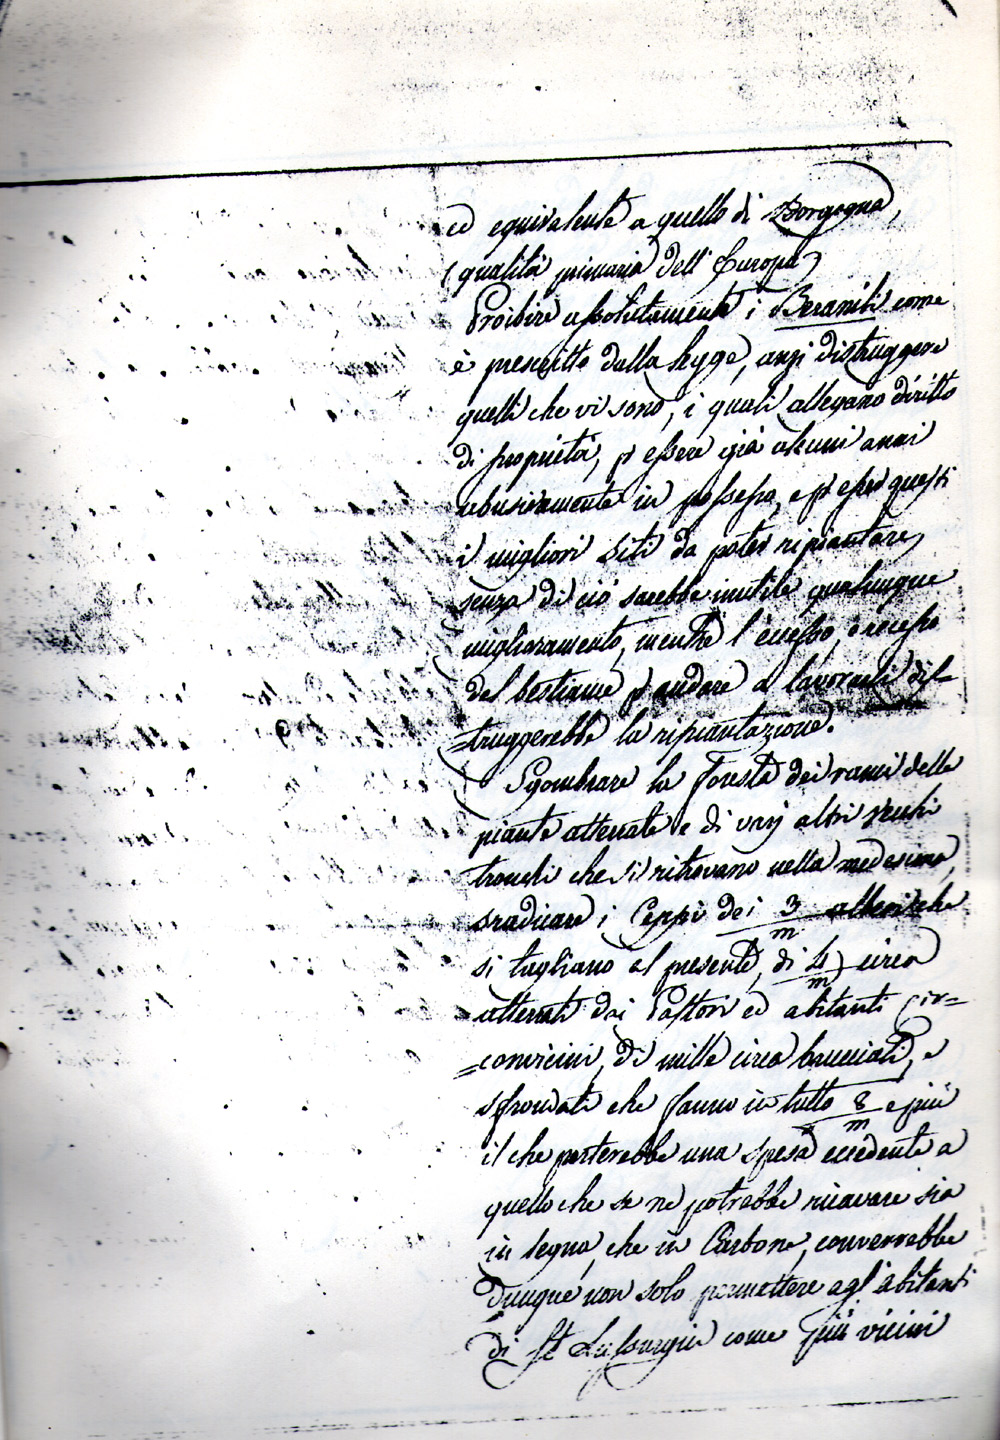 ed equivalente a quello di Borgogna,
(qualità primaria dell'Europa)
Proibire assolutamente i Beranili come
è prescritto dalla legge, anzi distruggere
quelli che vi sono, i quali allegano diritto
di proprietà, p essere già alcuni anni
abusivamente in possesso, e p esser questi
i migliori siti da poter ripiantare,
senza di ciò sarebbe inutile qualunque
miglioramento, mentre l'accesso, e recesso
del bestiame p andare a lavorarli dis-
=truggerebbe la ripiantazione.
Sgombrare la foresta dei rami delle
piante atterrate e di varj altri vecchi
tronchi che si ritrovano nella medesima,
sradicare i Ceppi dei 3/m alberi che
si tagliano al presente, di 4/m circa
atterrati dai Pastori ed abitanti cir=
=convicini, di mille circa brucciati, e
sfrondati che fanno in tutto 8/m e più
il che porterebbe una spesa eccedente a
quello che se ne potrebbe ricavare sia
in legna, che in Carbone, converrebbe
dunque non solo permettere agl'abitanti
di St Lussurgiu come più vicini